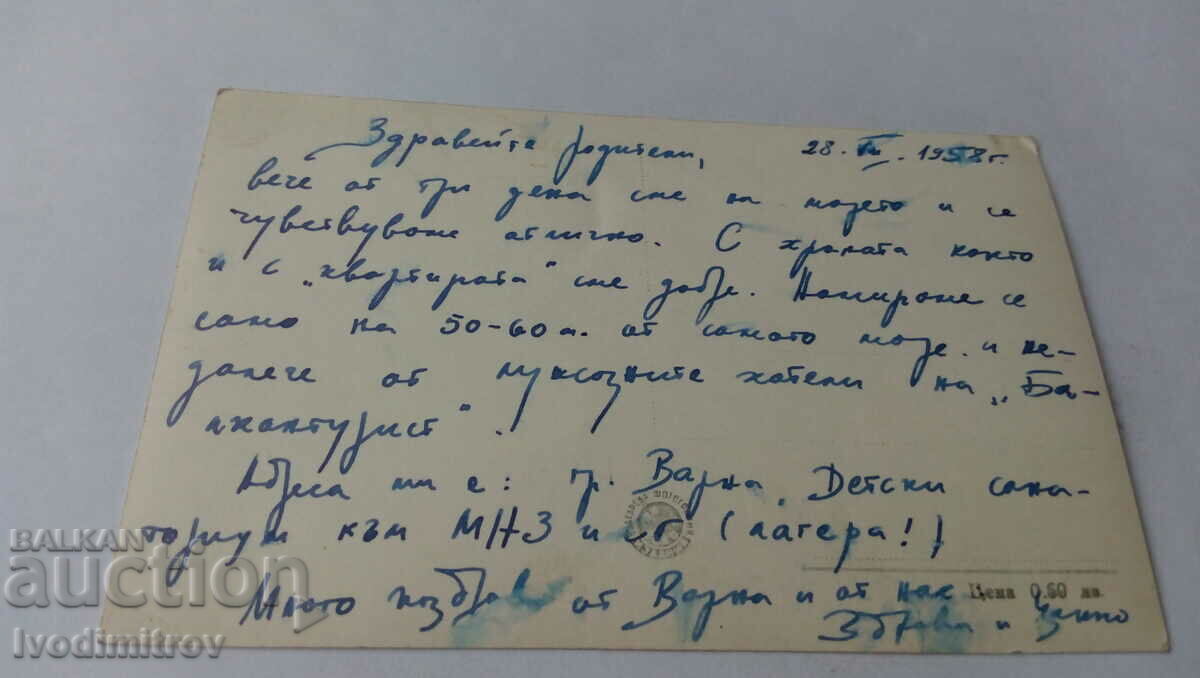 Здравейте родители, 28. VII. 1958 г.
вече от три дена сме на морето и се
чувствуваме отлично. С храната както
и с „квартирата“ сме добре. Намираме се
само на 50-60 м. от самото море и не-
далече от луксозните хотели на „Ба-
лкантурист“.
Адреса ми е: гр. Варна, Детски сана-
ториум към МНЗ и (лагера!)
Много поздрави от Варна и от нас
Здравка и
Цена 0.60 лв.
BALKAN
auction
Ivodimitrov